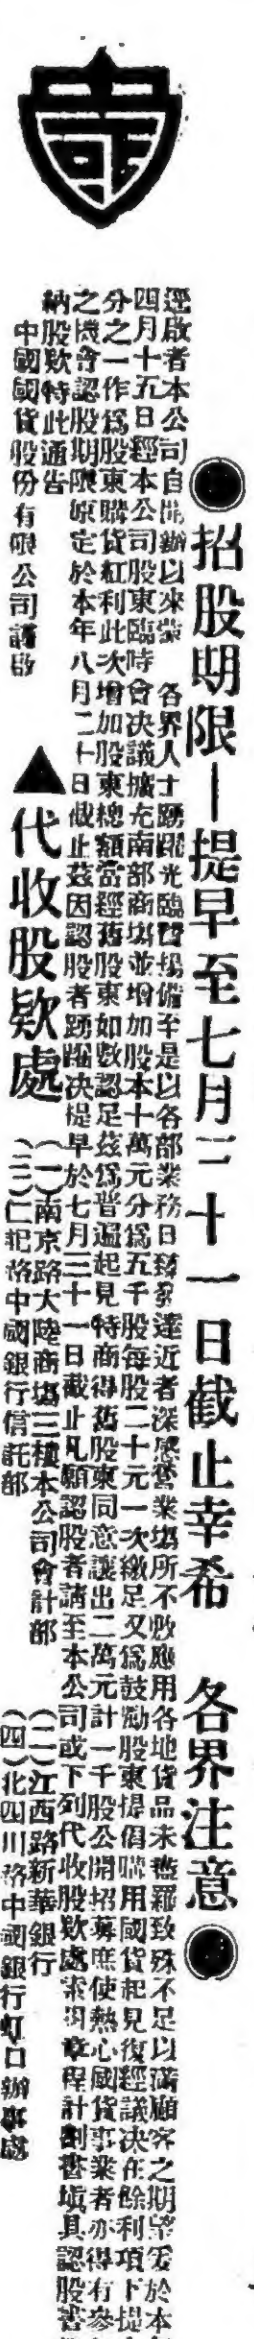 ●招股期限—提早至七月三十一日截止幸希　各界注意●
逕啟者本公司自開辦以來蒙　各界人士踴躍光臨營業備至是以各部業務日臻發達近者深感營業場所不敷應用各地貨品未盡羅致殊不足以滿顧客之期望爰於本
四月十五日經本公司股東臨時會決議擴充南部商場並增加股本十萬元分爲五千股每股二十元一次繳足又爲鼓勵股東提倡購用國貨起見復經議決在餘利項下提
分之一作爲股東購貨紅利此次增加股東總額當經舊股東如數認足茲爲普遍起見特商得舊股東同意讓出二萬元計一千股公開招募庶使熱心國貨事業者亦得有參
之機會認股期限原定於本年八月二十日截止茲因認股者踴躍決提早於七月三十一日截止凡願認股者請至本公司或下列代收股欵處索取章程計劃書塡具認股書
納股欵特此通告
中國國貨股份有限公司謹啟
▲代收股欵處
（一）南京路大陸商場三樓本公司會計部
（二）江西路新華銀行
（三）仁記路中國銀行信託部
（四）北四川路中國銀行虹口辦事處